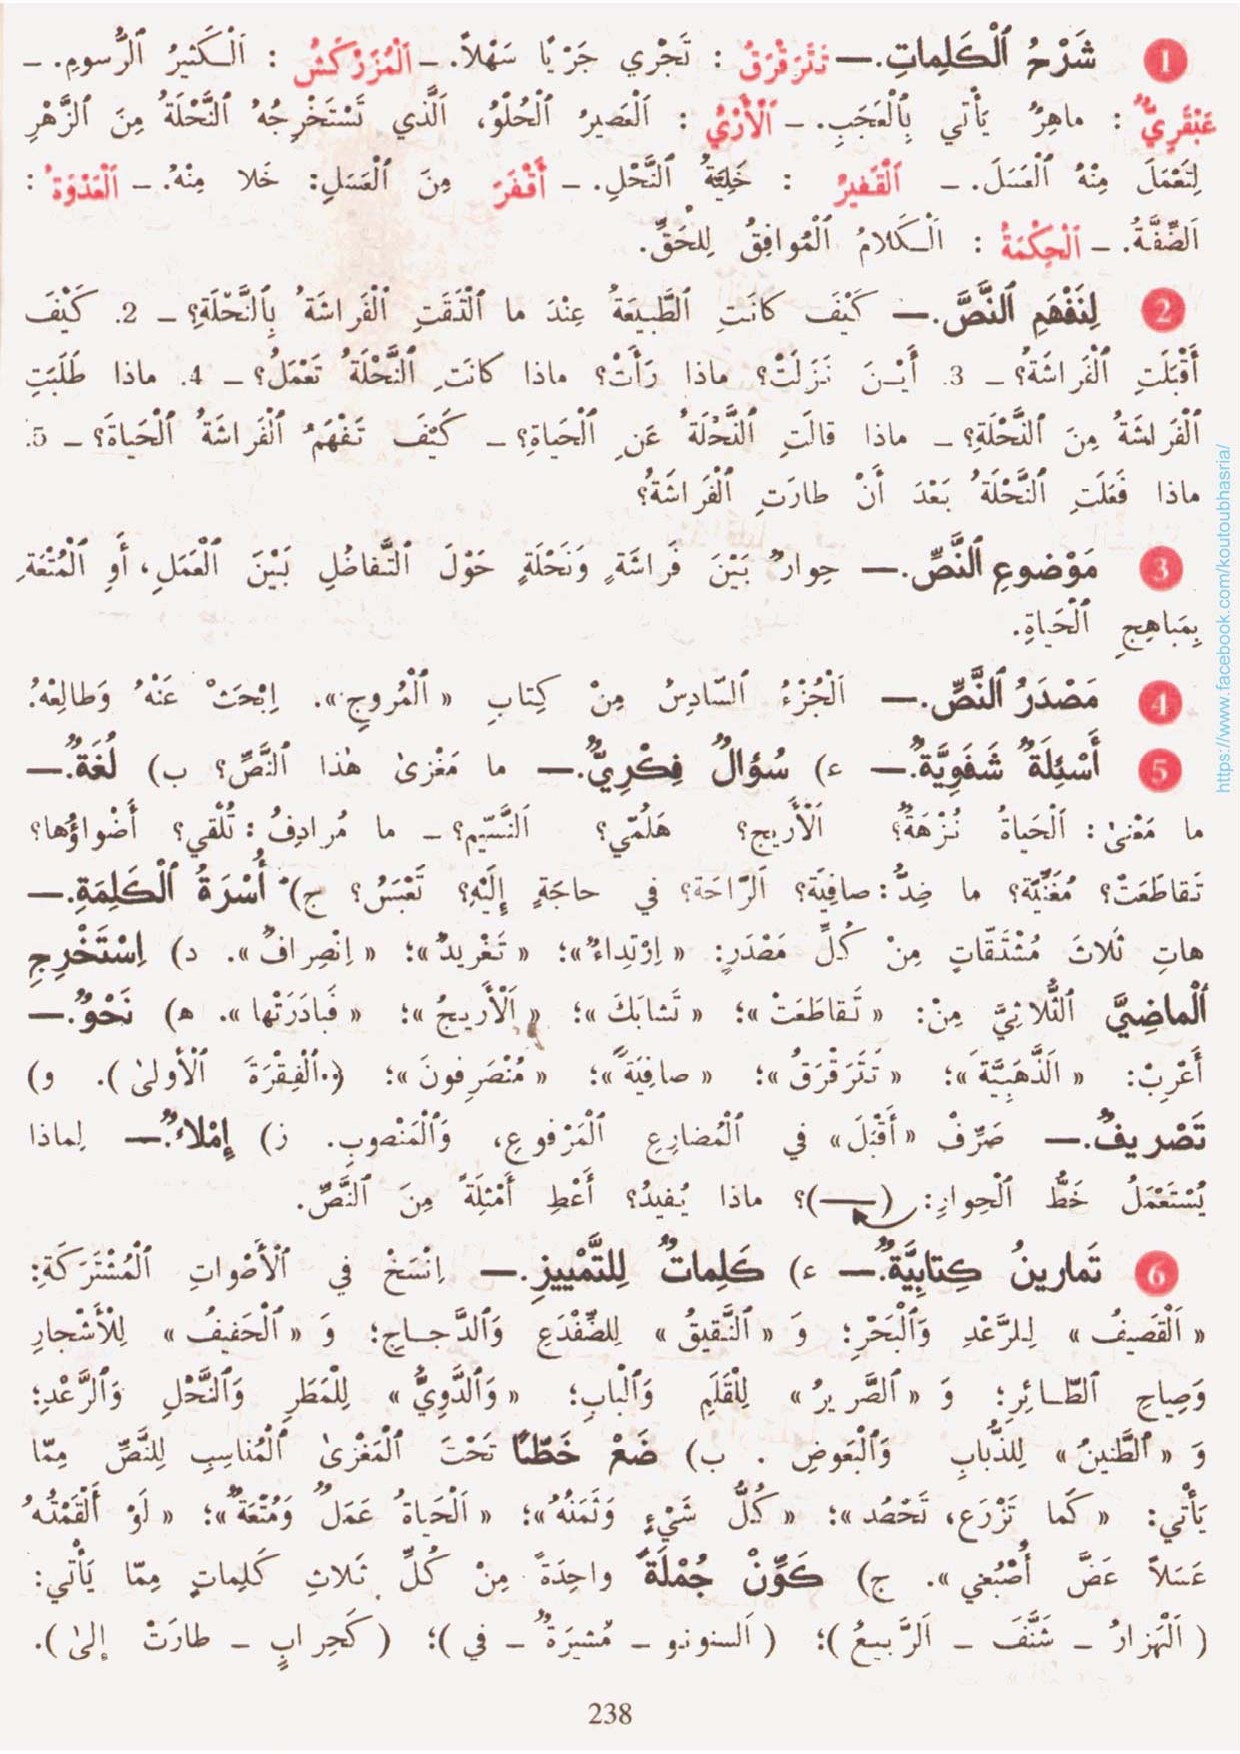 1 شَرْحُ ٱلْكَلِماتِ.— تَتَرَقْرَقُ : تَجْري جَرْيًا سَهْلاً. ـ اَلْمُزَرْكَشُ : اَلْكَثيرُ ٱلرُّسومِ. ـ
عَبْقَرِيٌّ : ماهِرٌ يَأْتي بِٱلْعَجَبِ. ـ اَلْأَرْيُ : اَلْعَصيرُ ٱلْحُلْوُ، اَلَّذي تَسْتَخْرِجُهُ ٱلنَّحْلَةُ مِنَ ٱلزَّهْرِ
لِتَعْمَلَ مِنْهُ ٱلْعَسَلَ. ـ اَلْقَفيرُ : خَلِيَّةُ ٱلنَّحْلِ. ـ أَقْفَرَ مِنَ ٱلْعَسَلِ: خَلا مِنْهُ. ـ اَلْعَدْوَةُ :
اَلضِّفَّةُ. ـ اَلْحِكْمَةُ : اَلْكَلامُ ٱلْمُوافِقُ لِلْحَقِّ.
2 لِنَفْهَمِ ٱلنَّصَّ.— كَيْفَ كانَتِ ٱلطَّبيعَةُ عِنْدَ ما ٱلْتَقَتِ ٱلْفَراشَةُ بِٱلنَّحْلَةِ؟ ـ 2. كَيْفَ
أَقْبَلَتِ ٱلْفَراشَةُ؟ ـ 3. أَيْنَ نَزَلَتْ؟ ماذا رَأَتْ؟ ماذا كانَتِ ٱلنَّحْلَةُ تَعْمَلُ؟ ـ 4. ماذا طَلَبَتِ
ٱلْفَراشَةُ مِنَ ٱلنَّحْلَةِ؟ ـ ماذا قالَتِ ٱلنَّحْلَةُ عَنِ ٱلْحَياةِ؟ ـ كَيْفَ تَفْهَمُ ٱلْفَراشَةُ ٱلْحَياةَ؟ ـ 5.
ماذا فَعَلَتِ ٱلنَّحْلَةُ بَعْدَ أَنْ طارَتِ ٱلْفَراشَةُ؟
3 مَوْضوعِ ٱلنَّصِّ.— حِوارٌ بَيْنَ فَراشَةٍ وَنَحْلَةٍ حَوْلَ ٱلتَّفاضُلِ بَيْنَ ٱلْعَمَلِ، أَوِ ٱلْمُتْعَةِ
بِمَباهِجِ ٱلْحَياةِ.
4 مَصْدَرُ ٱلنَّصِّ.— اَلْجُزْءُ ٱلسّادِسُ مِنْ كِتابِ « ٱلْمُروجِ». اِبْحَثْ عَنْهُ وَطالِعْهُ.
5 أَسْئِلَةٌ شَفَوِيَّةٌ.— ء) سُؤالٌ فِكْرِيٌّ.— ما مَغْزىٰ هٰذا ٱلنَّصِّ؟ ب) لُغَةٌ.—
ما مَعْنىٰ: اَلْحَياةُ نُزْهَةٌ؟ اَلْأَريج؟ هَلُمّي؟ اَلنَّسيم؟ ـ ما مُرادِفُ: تُلْقي؟ أَضْواؤُها؟
تَقاطَعَتْ؟ مُغَنِّيَة؟ ما ضِدُّ: صافِيَة؟ اَلرّاحَة؟ في حاجَةٍ إِلَيْهِ؟ تَعْبَسُ؟ ج) أُسْرَةُ ٱلْكَلِمَةِ.—
هاتِ ثَلاثَ مُشْتَقّاتٍ مِنْ كُلِّ مَصْدَرٍ: « اِرْتِداءٌ»؛ « تَغْريدٌ»؛ « اِنْصِرافٌ». د) اِسْتَخْرِجِ
ٱلْماضِيَّ ٱلثُّلاثِيَّ مِنْ: « تَقاطَعَتْ»؛ « تَشابَكَ»؛ « اَلْأَريجُ»؛ « فَبادَرَتْها». ه) نَحْوٌ.—
أَعْرِبْ: « اَلذَّهَبِيَّةَ»؛ « تَتَرَقْرَقُ»؛ « صافِيَةً»؛ « مُنْصَرِفونَ»؛ (..ٱلْفِقْرَةَ ٱلْأولىٰ). و)
تَصْريفٌ.— صَرِّفْ «أَقْبَلَ» في ٱلْمُضارِعِ ٱلْمَرْفوعِ، وَٱلْمَنْصوبِ. ز) إِمْلاءٌ.— لِماذا
يُسْتَعْمَلُ خَطُّ ٱلْحِوارِ: (—)؟ ماذا يُفيدُ؟ أَعْطِ أَمْثِلَةً مِنَ ٱلنَّصِّ.
6 تَمارينُ كِتابِيَّةٌ.— ء) كَلِماتٌ لِلتَّمْييزِ.— اِنْسَخْ في ٱلْأَصْواتِ ٱلْمُشْتَرَكَةِ:
« اَلْقَصيفُ » لِلرَّعْدِ وَٱلْبَحْرِ؛ وَ « ٱلنَّقيقُ » لِلضِّفْدَعِ وَٱلدَّجاجِ؛ وَ « ٱلْحَفيفُ » لِلْأَشْجارِ
وَصِياحِ ٱلطّائِرِ؛ وَ « ٱلصَّريرُ » لِلْقَلَمِ وَٱلْبابِ؛ « وَٱلدَّوِيُّ » لِلْمَطَرِ وَٱلنَّحْلِ وَٱلرَّعْدِ؛
وَ « ٱلطَّنينُ » لِلذُّبابِ وَٱلْبَعوضِ . ب) ضَعْ خَطّاً تَحْتَ ٱلْمَغْزىٰ ٱلْمُناسِبِ لِلنَّصِّ مِمّا
يَأْتي: « كَما تَزْرَع، تَحْصُد »؛ « كُلُّ شَيْءٍ وَثَمَنُهُ »؛ « اَلْحَياةُ عَمَلٌ وَمُتْعَةٌ »؛ « لَوْ أَلْقَمْتُهُ
عَسَلاً عَضَّ أُصْبُعي ». ج) كَوِّنْ جُمْلَةً واحِدَةً مِنْ كُلِّ ثَلاثِ كَلِماتٍ مِمّا يَأْتي:
( اَلْهَزارُ ـ شَنَّفَ ـ اَلرَّبيعُ )؛ ( اَلسنونو ـ مُشيرَةٌ ـ في )؛ ( كَحِرابٍ ـ طارَتْ إلىٰ ).
238
https://www.facebook.com/koutoubhasria/